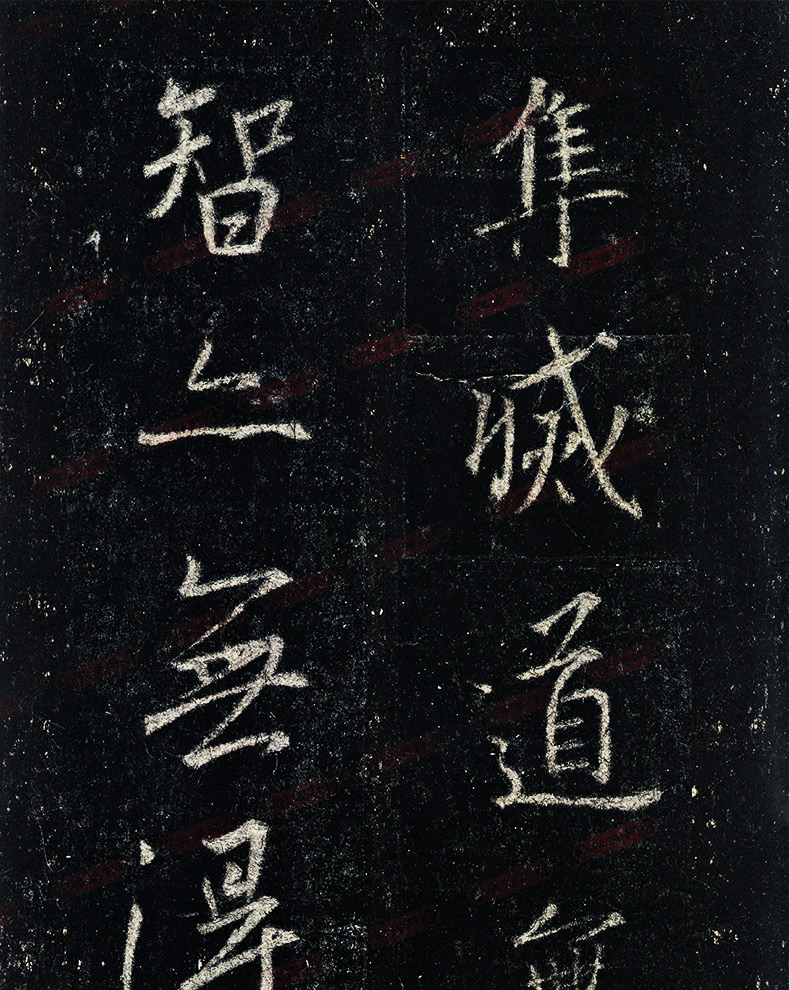 集滅道無
智亦無得